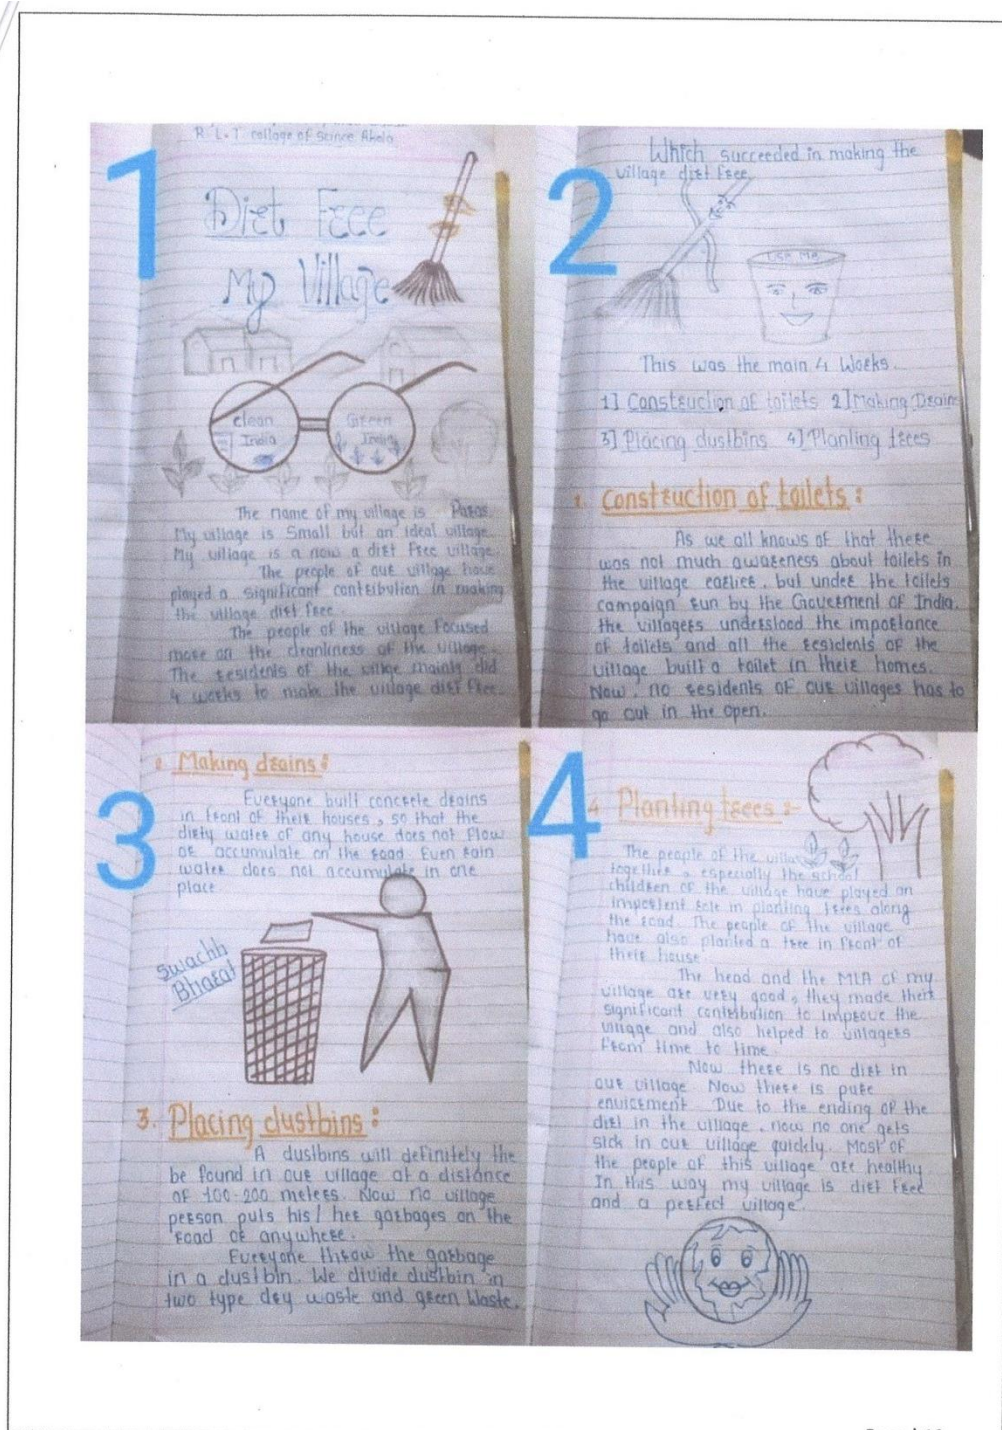 1
R. L. T. collage of Scince Akola
Dirt Free
My Village
clean
India
Green
India
The name of my village is Paras.
My village is Small but an ideal village.
My village is a now a dirt free village.
The people of our village have
played a significant contribution in making
the village dirt free.
The people of the village focused
more on the cleanliness of the village.
The residents of the villge mainly did
4 works to make the village dirt free.
2
Which succeeded in making the
village dirt free.
USE ME
This was the main 4 Works.
1] Construction of toilets 2] Making Drains
3] Placing dustbins 4] Planting trees
1. Construction of toilets:
As we all knows of that there
was not much awareness about toilets in
the village earlier, but under the toilets
campaign run by the Goverment of India,
the villagers understood the importance
of toilets and all the residents of the
village built a toilet in their homes.
Now, no residents of our villages has to
go out in the open.
3
2. Making drains:
Everyone built concrete drains
in front of their houses, so that the
dirty water of any house does not flow
or accumulate on the road. Even rain
water does not accumulate in one
place.
Swachh
Bharat
3. Placing dustbins:
A dustbins will definitely the
be found in our village at a distance
of 100-200 meters. Now no village
person puts his/her garbages on the
road or anywhere.
Everyone throw the garbage
in a dustbin. We divide dustbin in
two type dry waste and green Waste.
4
4. Planting trees :-
The people of the villa
together, especially the school
children of the village have played an
importent role in planting trees along
the road. The people of the village
have also planted a tree in front of
their house
The head and the MLA of my
village are very good, they made their
significant contribution to improve the
village and also helped to villagers
from time to time.
Now there is no dirt in
our village. Now there is pure
envirement. Due to the ending of the
dirt in the village, now no one gets
sick in our village quickly. Most of
the people of this village are healthy
In this way my village is dirt free
and a perfect village.